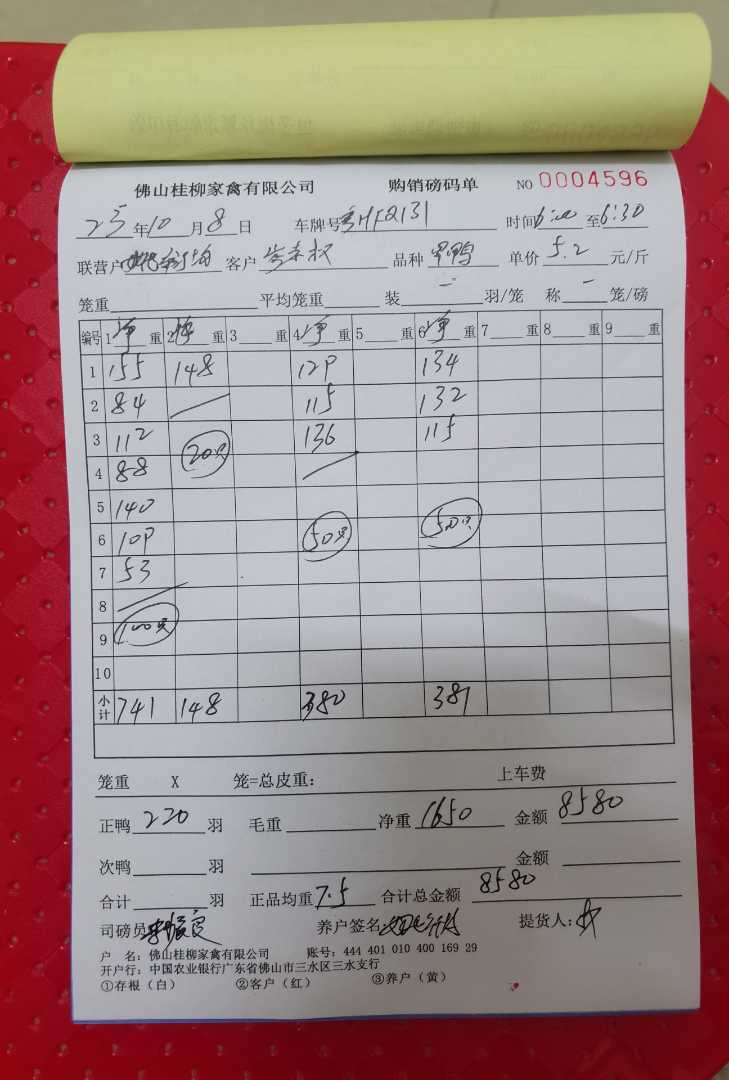 佛山桂柳家禽有限公司 购销磅码单 NO 0004596
25年10月8日 车牌号 HF2131 时间6:00至6:30
联营户 客户 权 品种 鸭 单价5.2元/斤
笼重 平均笼重 装一羽/笼 称一笼/磅
编号 1净重 2净重 3重 4净重 5重 6净重 7重 8重 9重
1 155 148 129 134
2 84 115 132
3 112 20只 136 115
4 88
5 140
6 109 50只 50只
7 53
8
9 100只
10
小计 741 148 380 381
笼重 X 笼=总皮重: 上车费
正鸭220羽 毛重 净重1650 金额8580
次鸭 羽 金额
合计 羽 正品均重7.5 合计总金额8580
司磅员 养户签名 提货人:
户 名: 佛山桂柳家禽有限公司 账号: 444 401 010 400 169 29
开户行: 中国农业银行广东省佛山市三水区三水支行
①存根(白) ②客户(红) ③养户(黄)